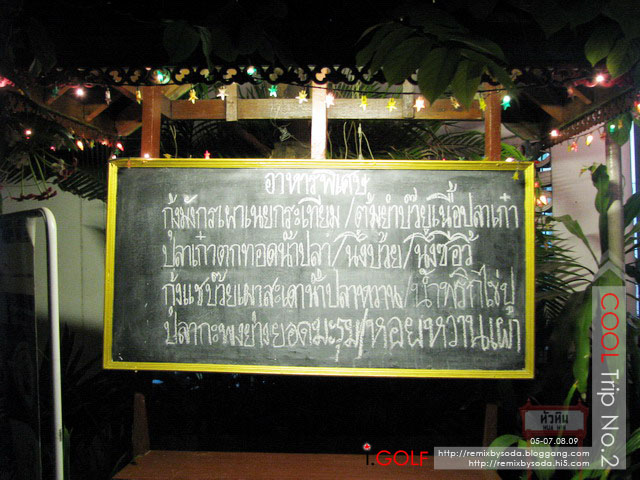 อาหารพิเศษ
กุ้งมังกรเผาเนยกระเทียม/ต้มยำบ๊วยเนื้อปลาเก๋า
ปลาเก๋าตกทอดน้ำปลา/นึ่งบ๊วย/นึ่งซีอิ้ว
กุ้งแชบ๊วยเผาสะเดาน้ำปลาหวาน/น้ำพริกไข่ปู
ปลากะพงย่างยอดมะรุม/หอยหวานเผา
COOL Trip No.2
หัวหิน
05-07.08.09
I.GOLF
http://remixbysoda.bloggang.com
http://remixbysoda.hi5.com